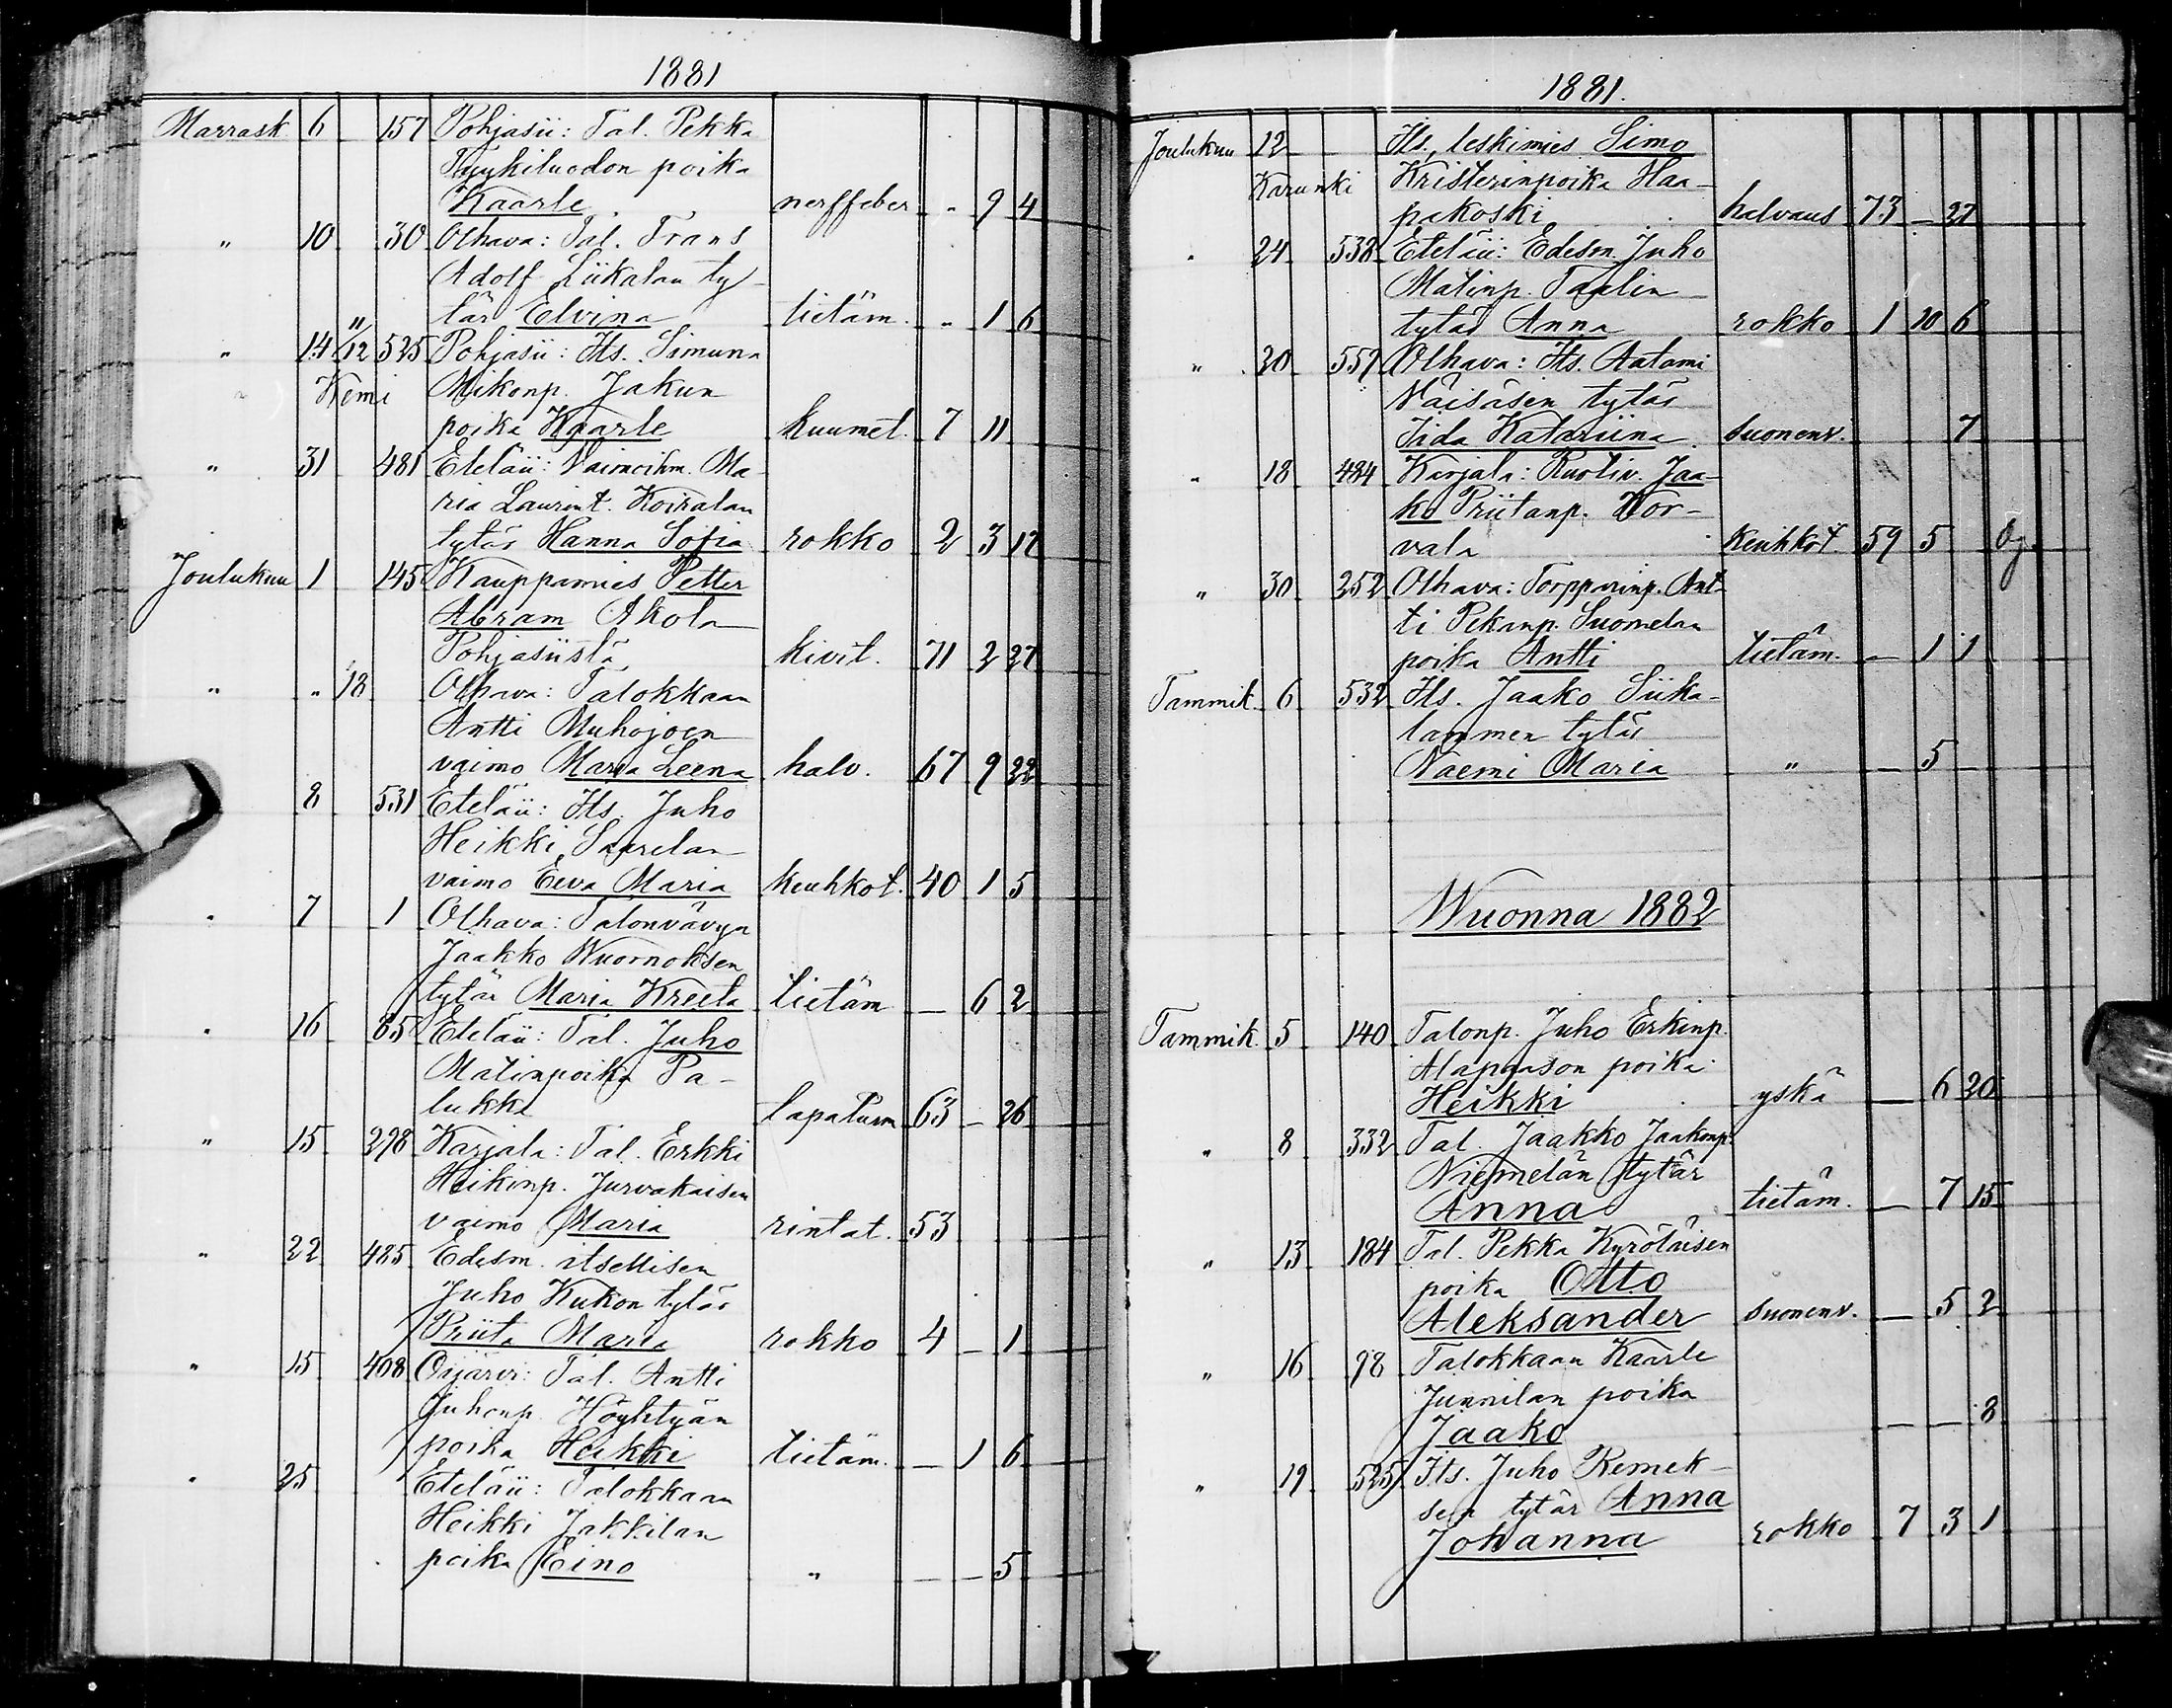 1881
Marrask. 6 157 Pohjasii: Tal. Pekka
Tyykiluodon poika
Kaarle nerffeber " 9 4
" 10 30 Olhava: Tal. Frans
Adolf Liikalan ty-
tär Elvina tietäm. " 1 6
" 14 11/12 525 Pohjasii: Its. Simuna
" Kemi Mikonp. Jakun
poika Kaarle kuumet. 7 11
" 31 481 Eteläii: Vaimoihm. Ma-
ria Laurint. Koiralan
tytär Hanna Sofia rokko 2 3 17
Joulukuu 1 145 Kauppamies Petter
Abram Akola
Pohjasiistä kivit. 71 2 27
" " 18 Olhava: Talokkaan
Antti Muhojoen
vaimo Maria Leena halv. 67 9 22
8 531 Eteläii: Its. Juho
Heikki Saarelan
vaimo Eeva Maria keuhkot. 40 1 5
" 7 1 Olhava: Talonvävyn
Jaakko Wuornoksen
tytär Maria Kreeta tietäm — 6 2
" 16 85 Eteläii: Tal. Juho
Matinpoika Pa-
lukka tapaturm 63 — 26
" 15 298 Karjala: Tal. Erkki
Heikinp. Jurvakaisen
vaimo Maria rintat. 53
" 22 485 Edesm. itsellisen
Juho Kukon tytär
Priita Maria rokko 4 — 1
" 15 408 Oijärvi: Tal. Antti
Juhonp. Höyhtyän
poika Heikki tietäm. — 1 6
" 25 Eteläii: Talokkaan
Heikki Jakkilan
poika Eino " — — 5
1881.
Joulukuu 12 Its. leskimies Simo
Karunki Kristerinpoika Haa-
pakoski halvaus 73 — 27
" 24 538 Eteläii: Edesm. Juho
Matinp. Taalin
tytär Anna rokko 1 10 6
" 20 559 Olhava: Its. Aatami
Väisäsen tytär
Iida Katariina suonenv. 7
" 18 484 Karjala: Ruotiv. Jaa-
ko Priitanp. Kor-
vala Keuhkot. 59 5
" 30 252 Olhava: Torpparinp. Ant-
ti Pekanp. Suomelan
poika Antti tietäm. — 1 1
Tammik. 6 532 Its. Jaako Siika-
lammen tytär
Naemi Maria " — 5
Wuonna 1882
Tammik. 5 140 Talonp. Juho Erkinp.
Alapaason poika
Heikki yskä — 6 20
" 8 332 Tal. Jaakko Jaakonp.
Niemelän tytär
Anna tietäm. — 7 15
" 13 184 Tal. Pekka Kyröläisen
poika Otto
Aleksander suonenv. — 5 2
" 16 98 Talokkaan Kaarle
Junnilan poika
Jaako — — 8
" 19 525 Its. Juho Remek-
sen tytär Anna
Johanna rokko 7 3 1